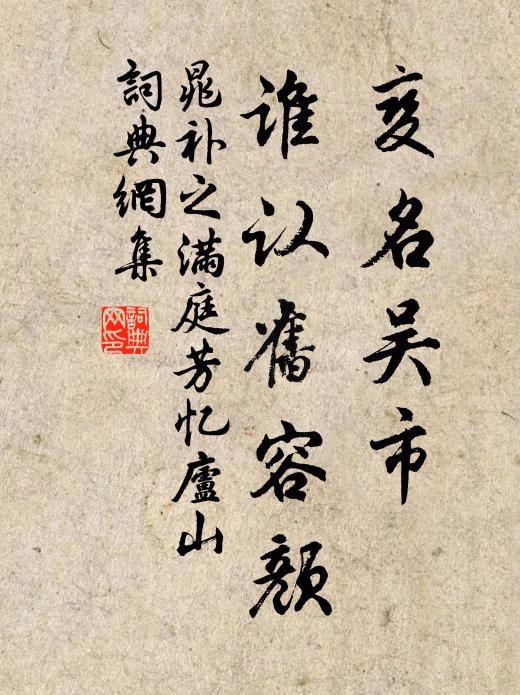 变名吴市
谁认舊容颜
晁补之满庭芳忆廬山
詞典網集
詞典
网印